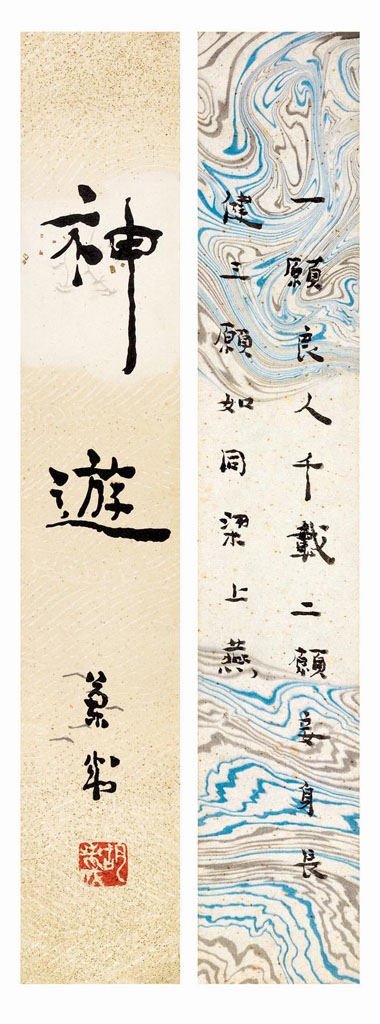 一願良人千載二願妾身長
健三願如同梁上燕
神遊
蘭成
胡蘭成